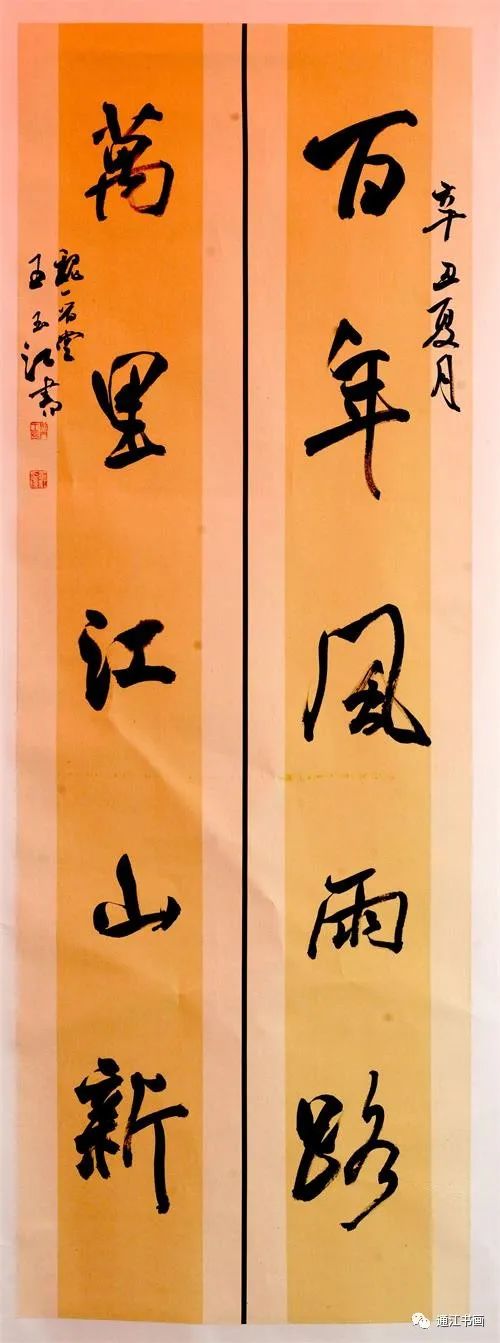 辛丑夏月
百年風雨路
萬里江山新
王玉江書
通江书画